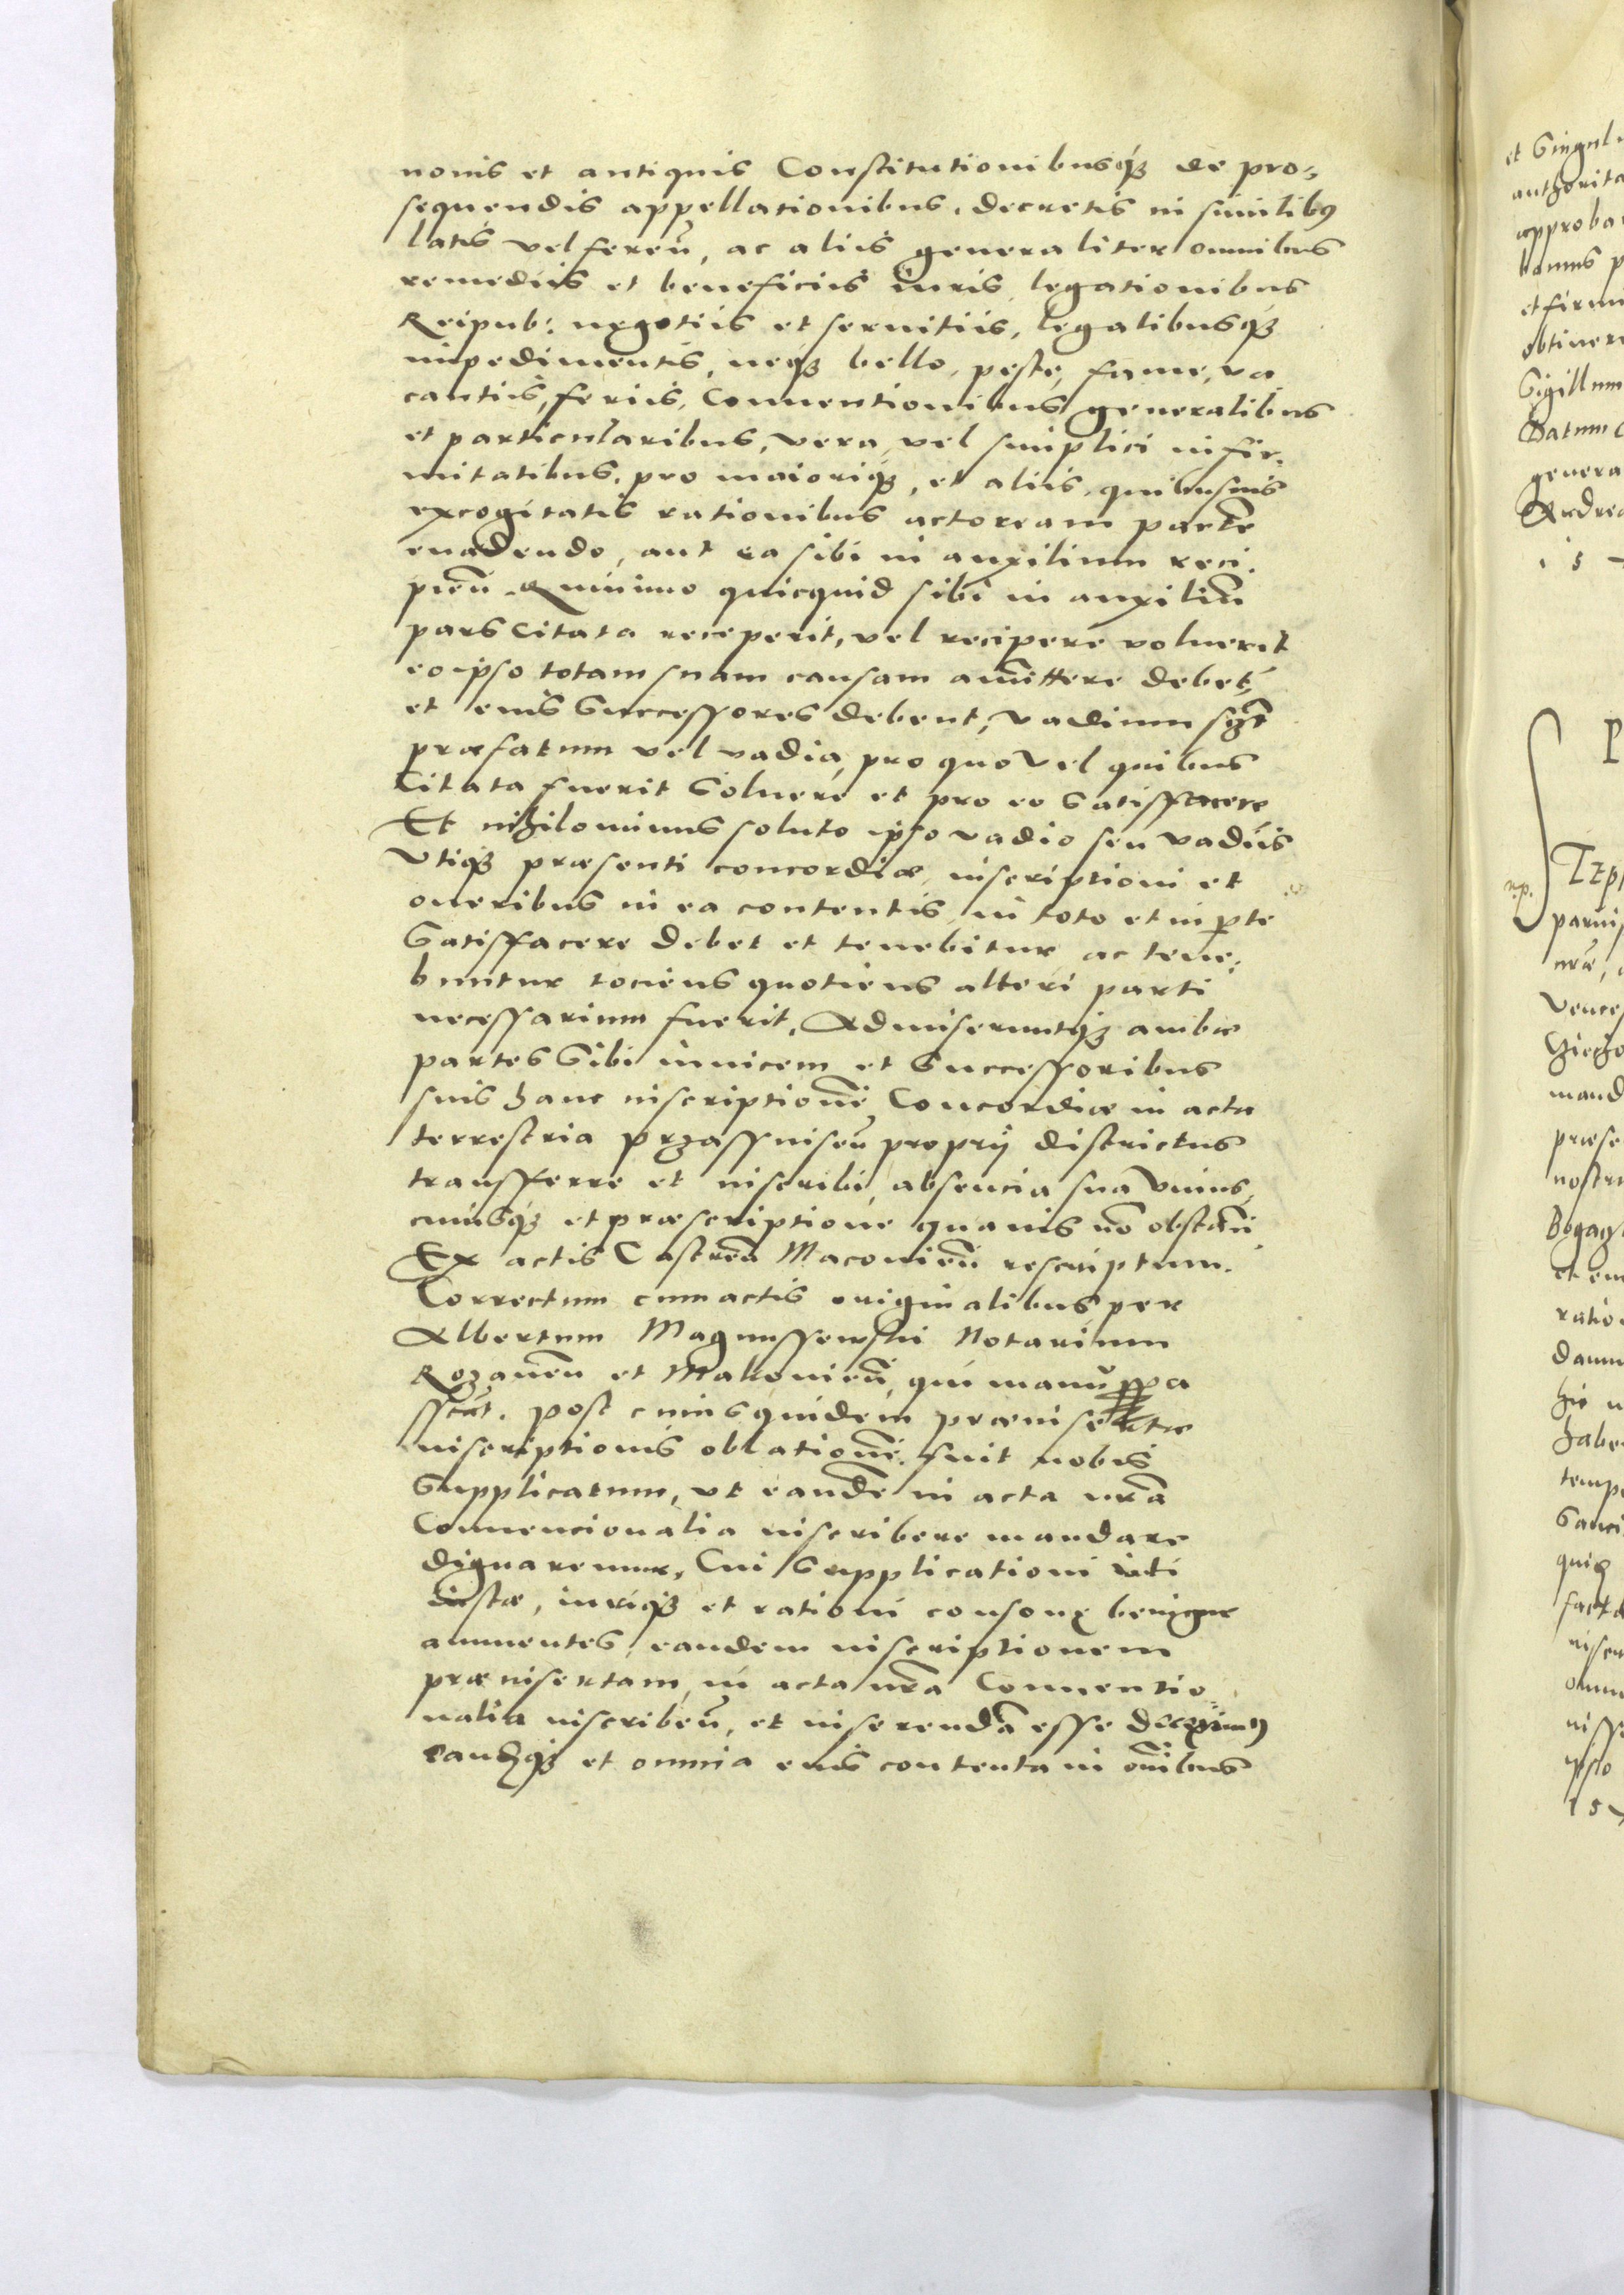 nouis et antiquis Constitutionibusq3 de pro=
sequendis appellationibus, decretis in similib9
latis vel fereñ, ac aliis generaliter omnibus
remediis et beneficiis iuris, legationibus
Reipub: negotiis et seruitiis, legalibusq3
impedimentis, neq3 bello, peste, fame, va
cantiis, feriis, Conuentionibus generalibus
et particularibus, vera, vel simplici infir-
mitatibus, pro maioriq3, et aliis, quibusuis
excogitatis rationibus actoream partē
euadendo, aut ea sibi in auxilium reci-
pieñ. Quinimo quicquid sibi in auxiliū
pars Citata receperit, vel recipere voluerit
eo ipso totam suam causam amittere debet,
et eius Successores debent, vadium
præfatum vel vadia, pro quo vel quibus
Citata fuerit Soluere et pro eo Satisffacere
Et nihilominus soluto ipso vadio seu vadiis
Vtiq3 præsenti concordiæ, inscriptioni et
oneribus in ea contentis in toto et in p̱te
Satisffacere debet et tenebitur ac tene=
buntur tociens quotiens alteri parti
necessarium fuerit, Admiseruntq3 ambæ
partes Sibi inuicem et Successoribus
suis hanc inscriptionē Concordiæ in acta
terrestria Przassniseñ proprij districtus
transfferre et inscribi, absencia sua vnius,
cuiusq3 et præscriptione quauis nō obstañ
Ex actis Castreñ Maconieñ rescriptum.
Correctum cum actis originalibus per
Albertum Magnussewski Notarium
Rozaneñ et Makonieñ, qui manu ppa
sscrt. Post cuius quidem præinsertæ
inscriptionis oblationē, fuit nobis
Supplicatum, vt eandē in acta nrā
Conuencionalia inscribere mandare
dignaremur, Cui Supplicationi uti
iustæ, iuriq3 et rationi consonę benigne
annuentes, eandem inscriptionem
præinsertam, in acta nrā Conuentio-
nalia inscribeñ, et inserendā esse duximus
eandq3 et omnia eius contenta in oībus
et Singul
authorita
approba
bamus p
et firmi
obtinere
Sigillum
Datum C
genera
Andrea
15
P
np.
parui
Vences
mand
præse
nostr
Bogag
ratio
damn
hic
habe
temp
Sanci
quiq3
fact
omn
ipso
15